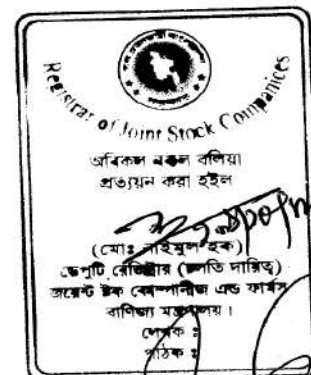 Registrar of Joint Stock Companies
অবিকল নকল বলিয়া
প্রত্যয়ন করা হইল
(মোঃ নাইমুল হক)
ডেপুটি রেজিস্ট্রার (চলতি দায়িত্ব)
জয়েন্ট ষ্টক কোম্পানীজ এন্ড ফার্মস
বাণিজ্য মন্ত্রণালয়।
লেখক :
পাঠক :